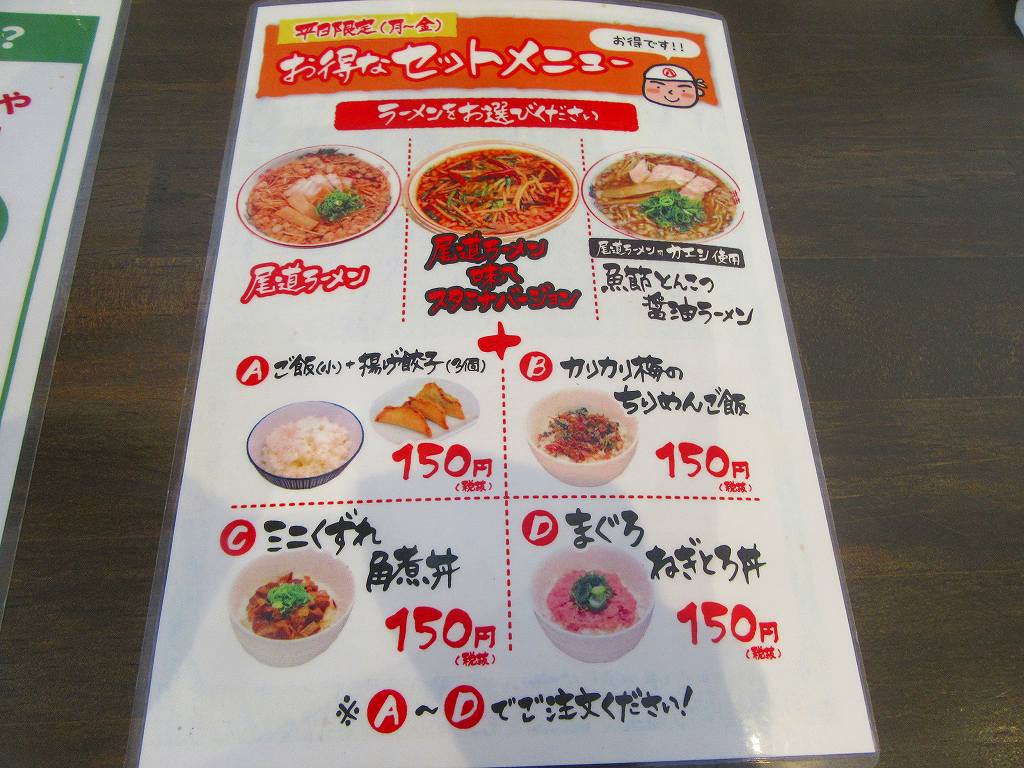 ?
や
平日限定(月～金)
お得なセットメニュー
お得です!!
ラーメンをお選びください
尾道ラーメン
尾道ラーメン
味八
スタミナバージョン
尾道ラーメンのカエシ使用
魚節とんこつ
醤油ラーメン
+
A ご飯(小)+揚げ餃子(3個)
150円
(税抜)
B カリカリ梅の
ちりめんご飯
150円
(税抜)
C ミニくずれ
角煮丼
150円
(税抜)
D まぐろ
ねぎとろ丼
150円
(税抜)
※A～Dでご注文ください!